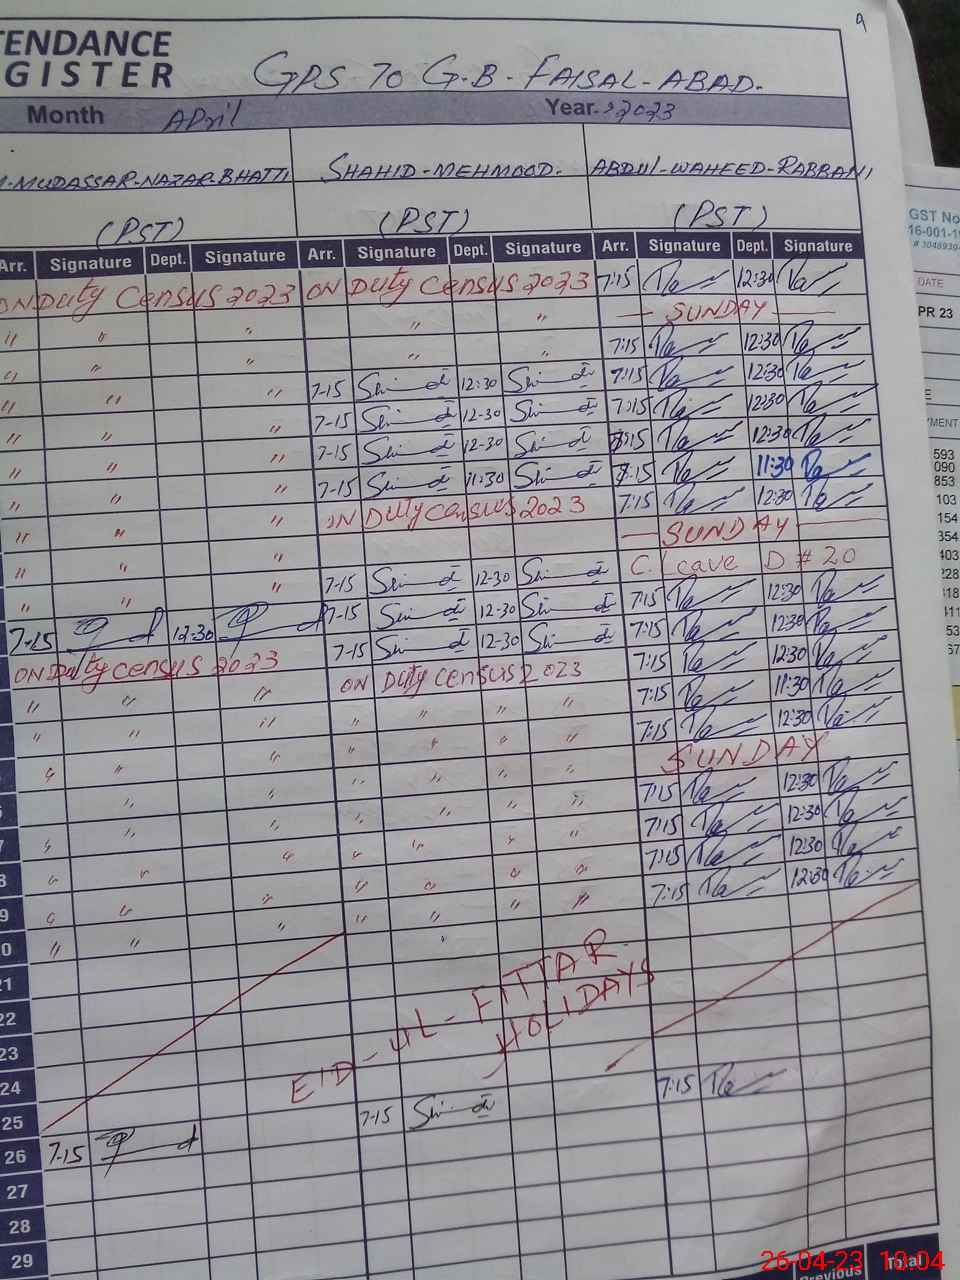 TENDANCE
GISTER
GPS 70 G.B-FAISAL-ABAD.
9
Month April Year. 2023
MUDASSAR-NAZAR-BHATTI SHAHID-MEHMOOD. ABDUL-WAHEED-RABBANI
(PST) (PST) (PST)
Arr. Signature Dept. Signature Arr. Signature Dept. Signature Arr. Signature Dept. Signature
ON Duty Census 2023 ON Duty Census 2023 7:15 12:30
" " " " " — SUNDAY —
" " " " " 7:15 12:30
" " " 7-15 12:30 7:15 12:30
" " " 7-15 12-30 7:15 12:30
" " " 7-15 12-30 7:15 12:30
" " " 7-15 11:30 7:15 11:30
" " " ON Duty census 2023 7:15 12:30
" " " — SUNDAY —
" " " 7-15 12-30 C. Leave D # 20
7-15 12-30 7-15 12-30 7:15 12:30
ON Duty census 2023 7-15 12-30 7:15 12:30
" " " ON Duty census 2023 7:15 12:30
" " " " " " " 7:15 11:30
" " " " " " " 7:15 12:30
" " " " " " SUNDAY
" " " " " " 7:15 12:30
" " " " " " 7:15 12:30
8 " " " " " " " 7:15 12:30
9 " " " " " " " 7:15 12:30
" "
21
22
23
24
25
EID-UL-FITTAR
HOLIDAYS
7:15
7-15
26 7-15
27
28
29
Previous Total
GST No
16-001-1
DATE
PR 23
YMENT
593
090
853
103
154
354
403
228
26-04-23 10:04